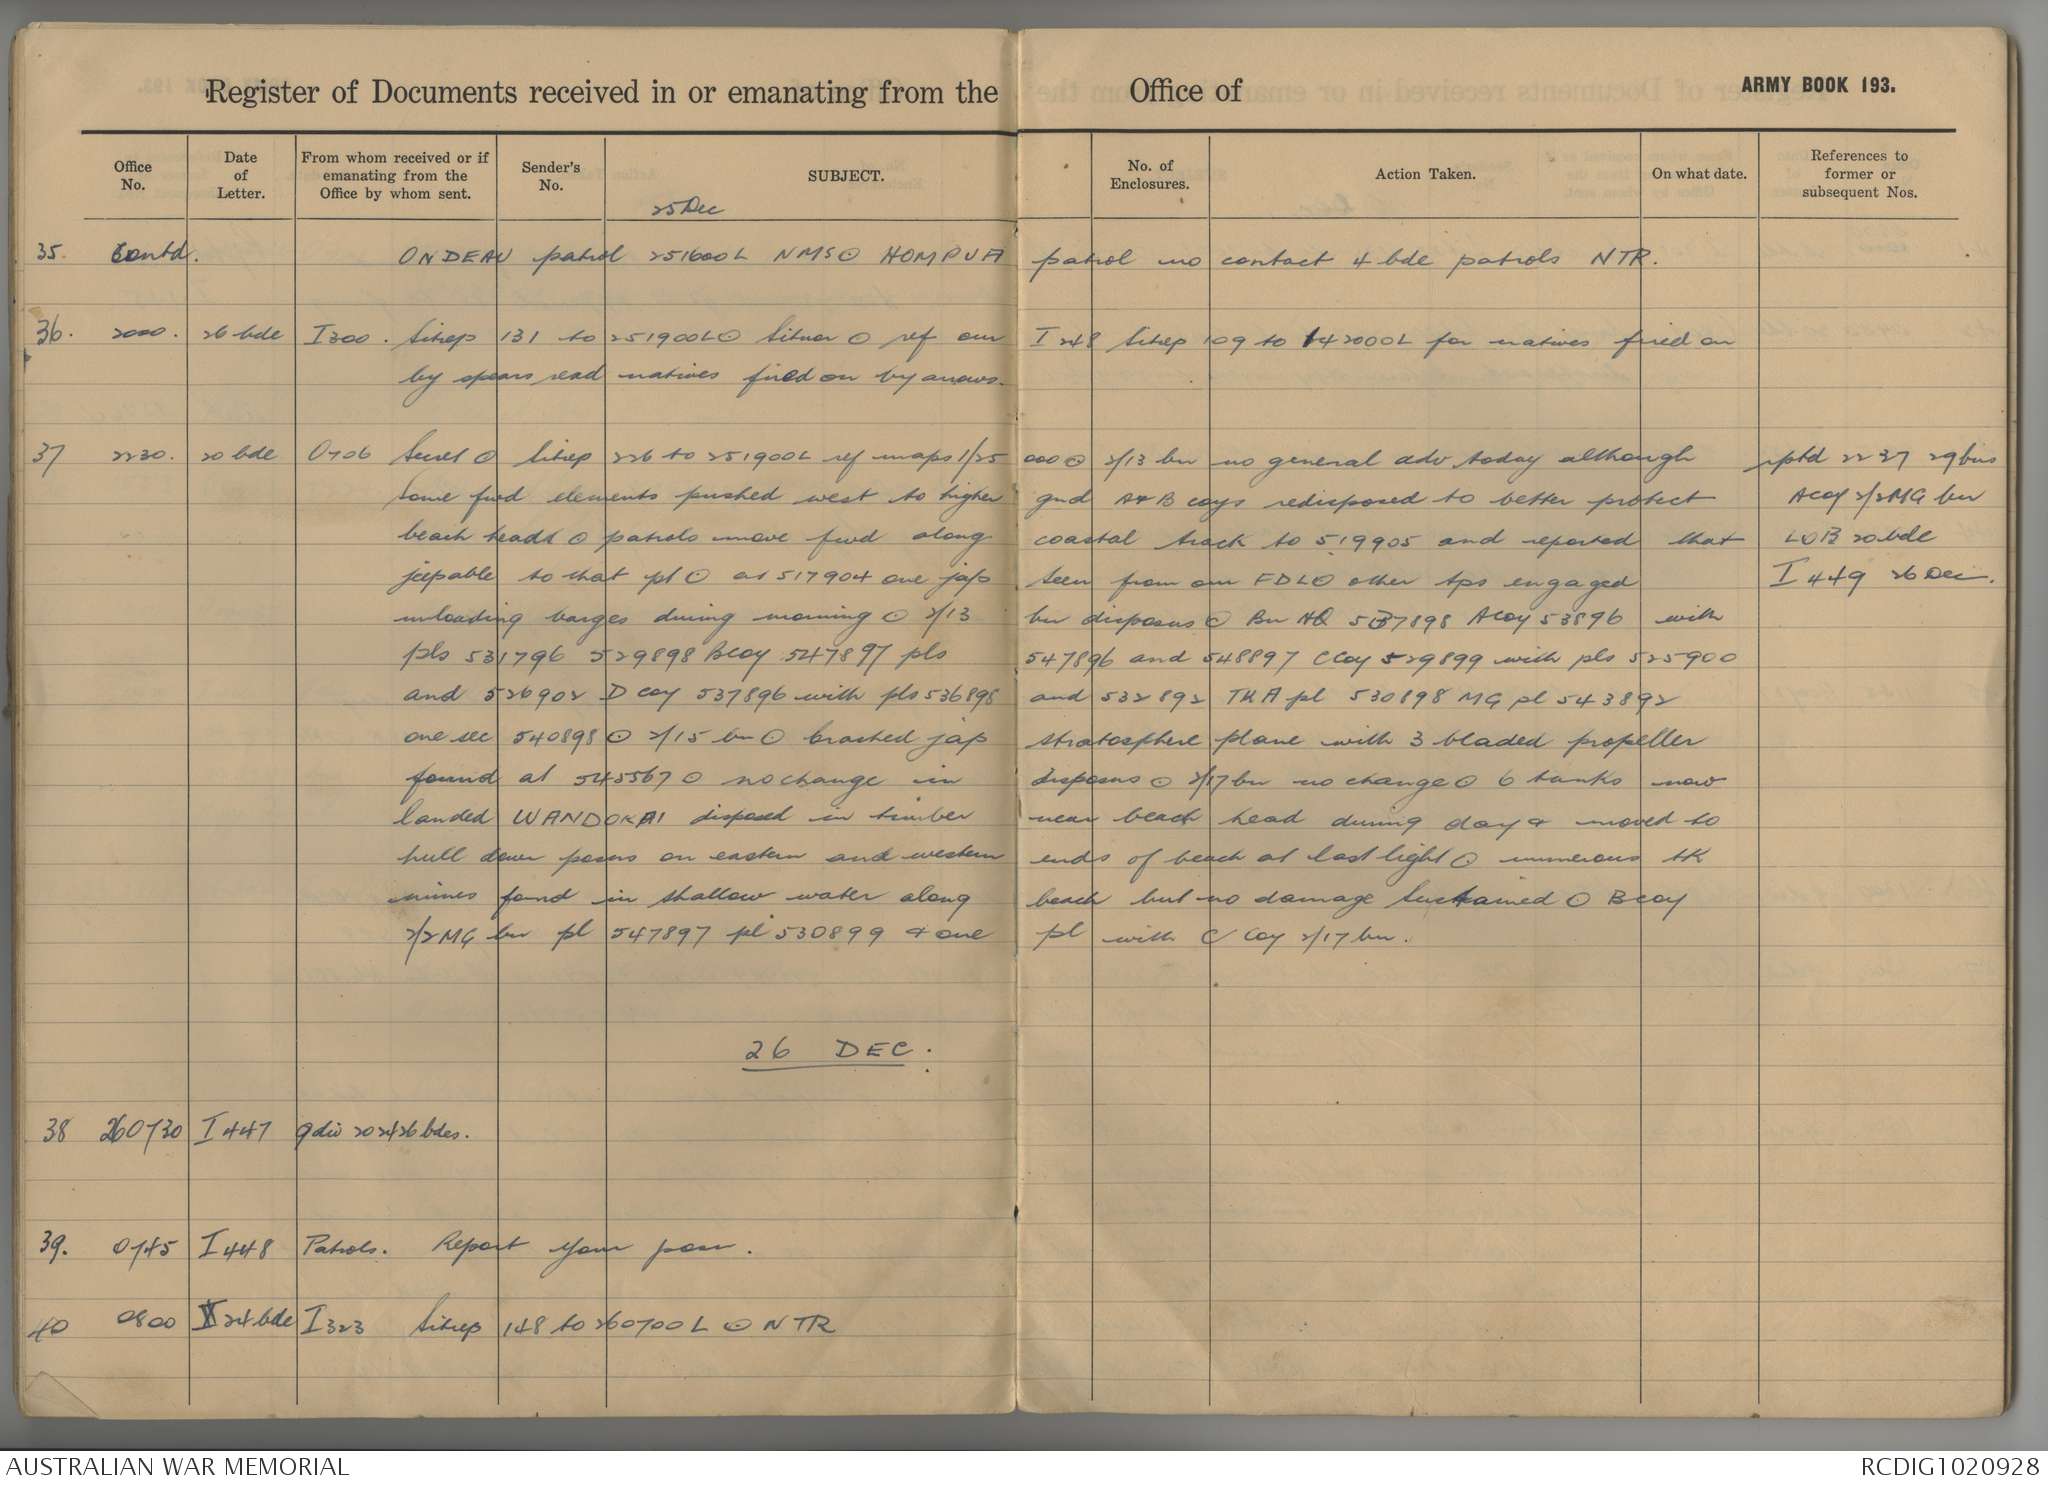 Register of Documents received in or emanating from the Office of ARMY BOOK 193.
Office No. Date of Letter. From whom received or if emanating from the Office by whom sent. Sender's No. SUBJECT. No. of Enclosures. Action Taken. On what date. References to former or subsequent Nos.
25 Dec
35 Contd. ONDEAU patrol 251600L NMS ⊙ HOMPUA patrol no contact 4 bde patrols NTR.
36. 2000. 26 bde I300. Sitrep 131 to 251900L ⊙ Situor ⊙ ref our I 248 Sitrep 109 to 142000L for natives fired on
by spears read natives fired on by arrows.
37 2230. 20 bde O706 Secret ⊙ Sitrep 226 to 251900L ref maps 1/25 000 ⊙ 2/13 bn no general adv today although rptd 2237 29 bns
some fwd elements pushed west to higher gnd A & B coys redisposed to better protect A coy 2/2 MG bn
beach heads ⊙ patrols move fwd along coastal track to 519905 and reported that LOB 20 bde
jeepable to that pt ⊙ at 517904 one jap seen from our FDL ⊙ other tps engaged I 449 26 Dec.
unloading barges during morning ⊙ 2/13 bn disposns ⊙ Bn HQ 537898 A coy 53896 with
pls 531796 529898 B coy 547897 pls 547896 and 548897 C Coy 529899 with pls 525900
and 526902 D coy 537896 with pls 536898 and 532892 TKA pl 530898 MG pl 543892
one sec 540898 ⊙ 2/15 bn ⊙ Crashed jap stratosphere plane with 3 bladed propeller
found at 545567 ⊙ no change in disposns ⊙ 2/17 bn no change ⊙ 6 tanks now
landed WANDOKAI disposed in timber near beach head during day & moved to
hull down posns on eastern and western ends of beach at last light ⊙ numerous tk
mines found in shallow water along beach but no damage sustained ⊙ B coy
2/2 MG bn pl 547897 pl 530899 & one pl with C Coy 2/17 bn.
26 DEC.
38 260730 I 447 9 div 20 24 26 bdes.
39. 0745 I 448 Patrols. Report your posn.
40 0800 24 bde I 323 Sitrep 148 to 260700L ⊙ NTR
AUSTRALIAN WAR MEMORIAL RCDIG1020928